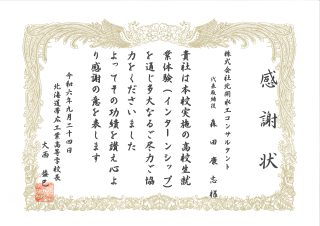 感謝状
株式会社光開水工コンサルタント
代表取締役 森田康志様
貴社は本校実施の高校生就
業体験(インターンシップ)
を通じ多大なるご尽力ご協
力をくださいました
よってその功績を讃え心よ
り感謝の意を表します
令和六年九月二十四日
北海道帯広工業高等学校長
大西 益巳